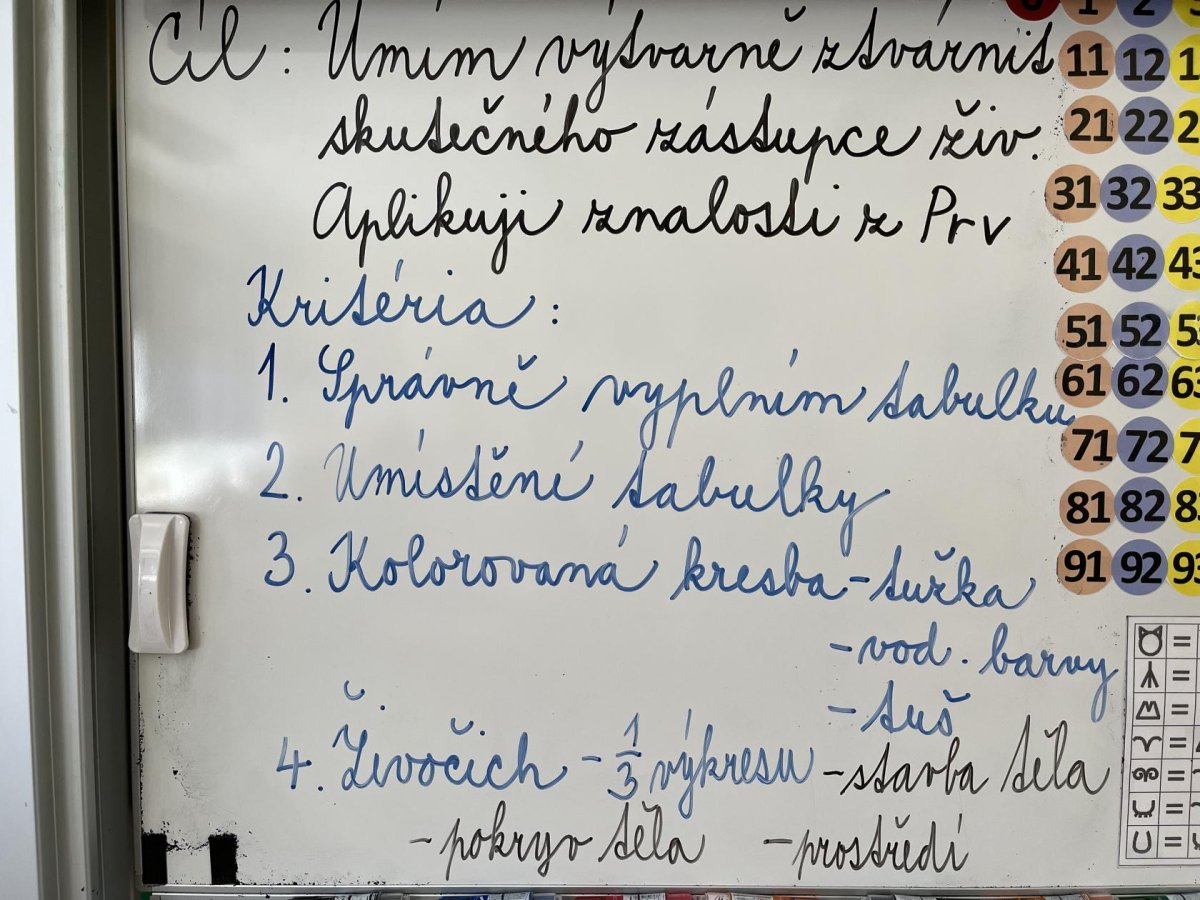 Cíl: Umím výtvarně ztvárnit
skutečného zástupce živ.
Aplikuji znalosti z Prv
Kritéria:
1. Správně vyplním tabulku
2. Umístění tabulky
3. Kolorovaná kresba - tužka
- vod. barvy
- tuš
4. Živočich - 1/3 výkresu - stavba těla
- pokryv těla - prostředí
1 2
11 12 1
21 22 2
31 32 33
41 42 43
51 52 53
61 62 63
71 72 7
81 82 83
91 92 93